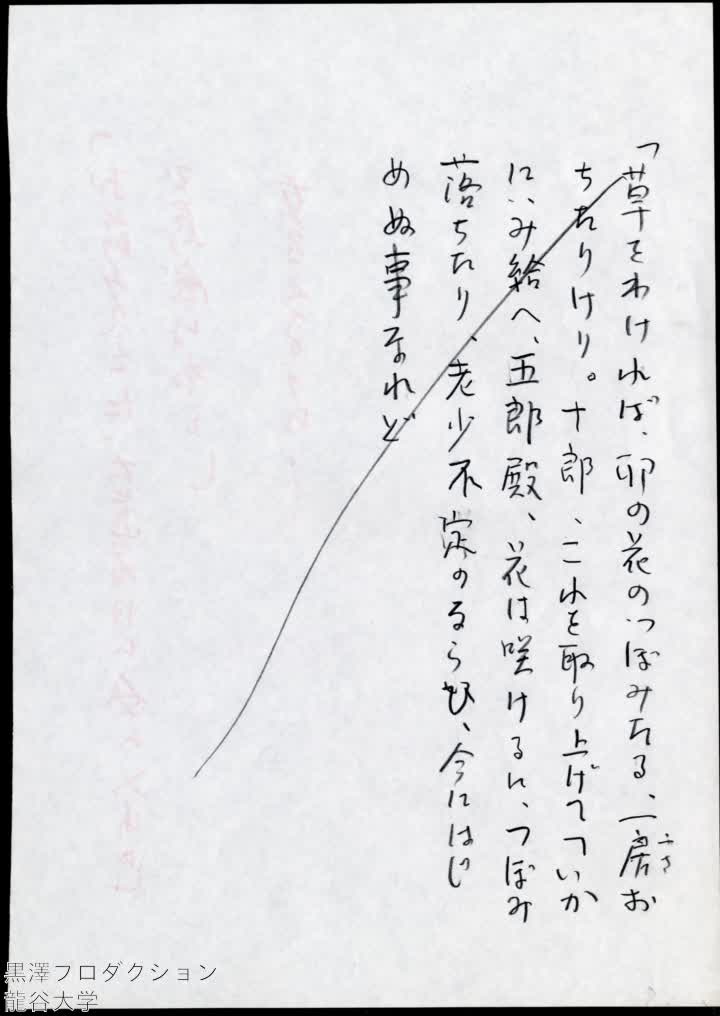 「草をわければ、卯の花のつぼみたる、一房お
ふさ
ちたりけり。十郎、これを取り上げてついか
にいみ給へ、五郎殿、花は咲けるに、つぼみ
落ちたり、老少不定のならひ、今にはじ
めぬ事なれど
黒澤プロダクション
龍谷大学